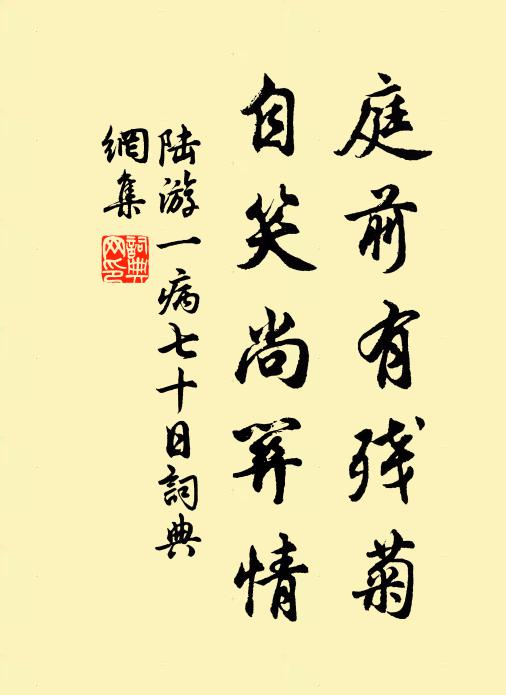 庭前有残菊
自笑尚關情
陸游一病七十日詞典
網集
詞典网印